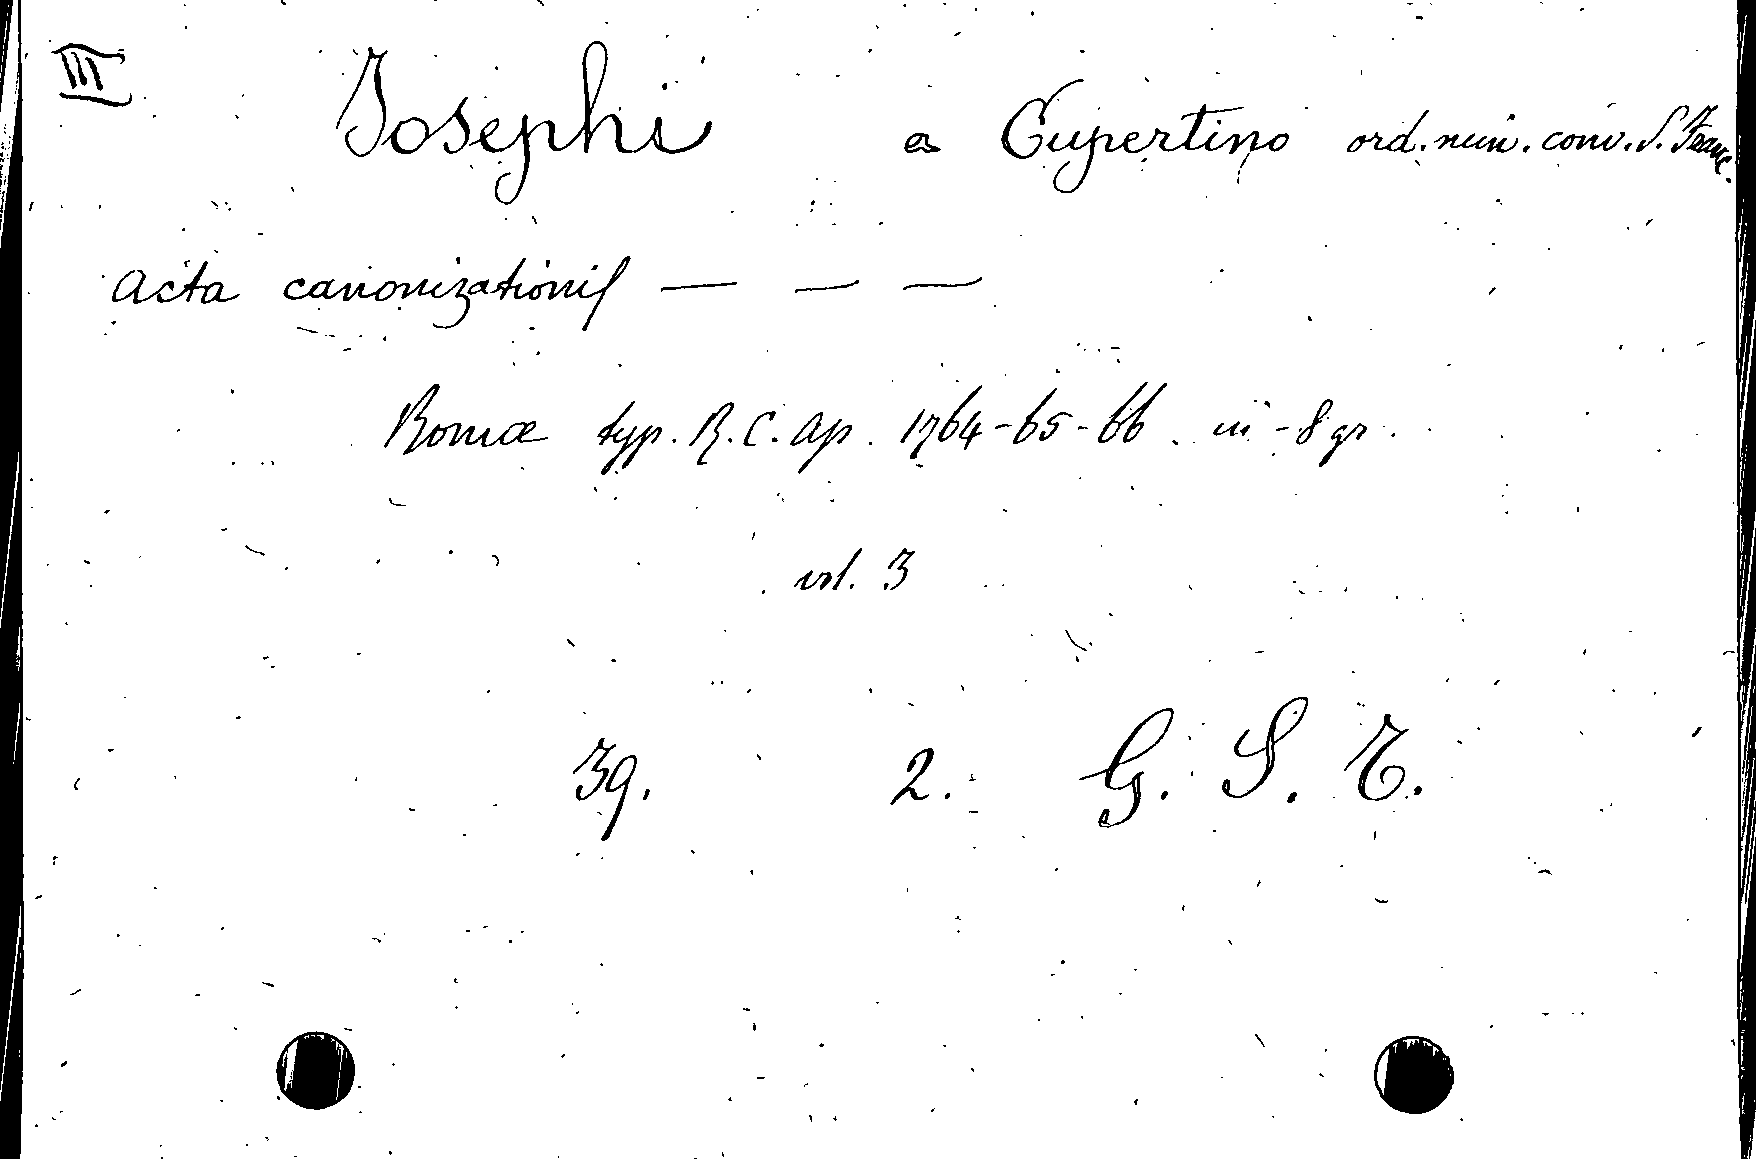 III Josephi a Cupertino ord. min. conv. S. Franc.
Acta canonizationis — — —
Romae typ. R. C. Ap. 1764-65-66. in-8 gr.
vol. 3
39. 2. G. S. T.